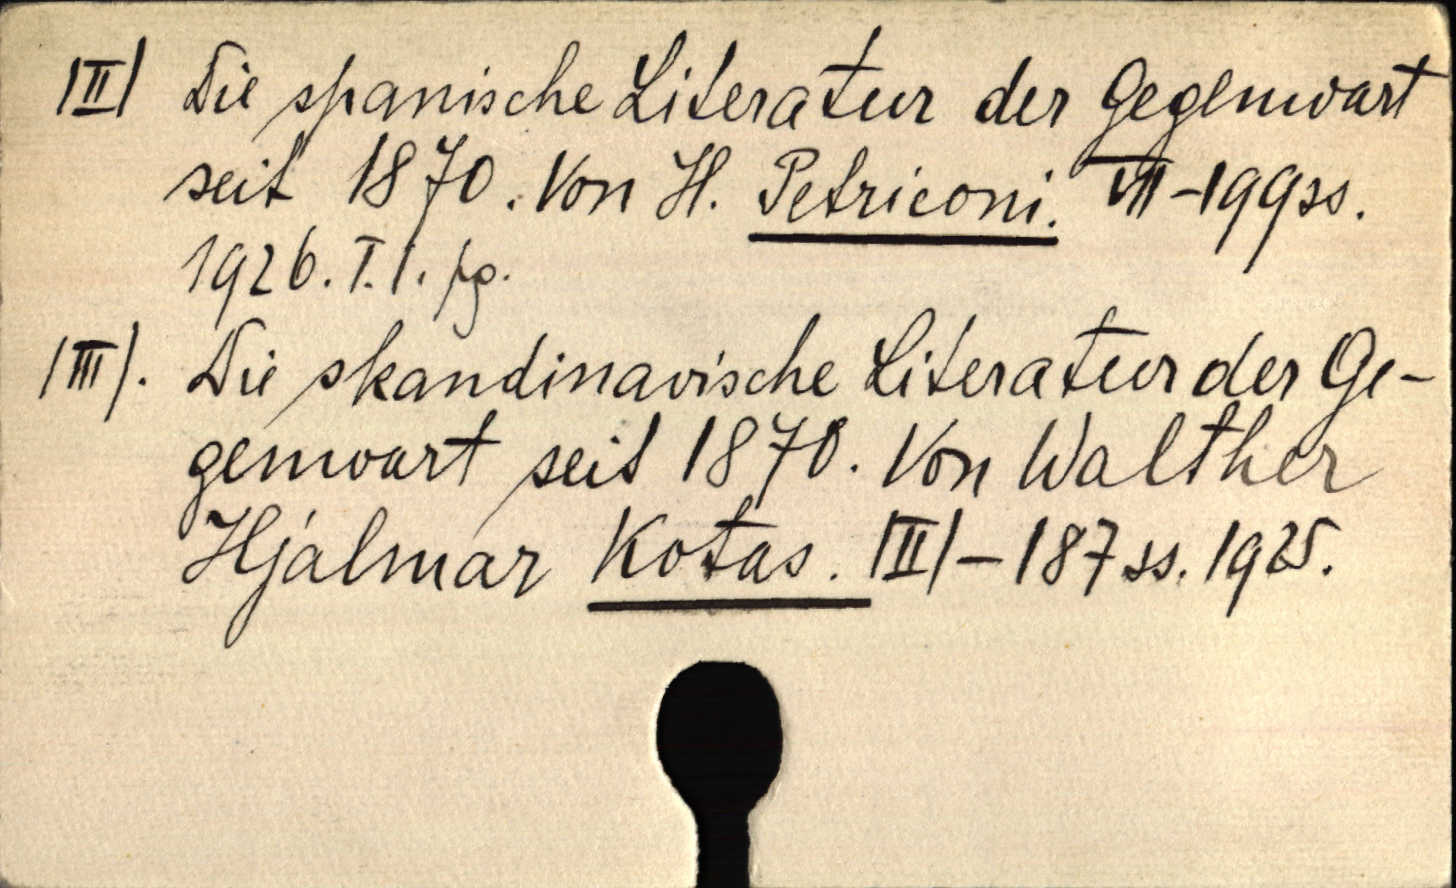 /II/ Die spanische Literatur der Gegenwart
seit 1870. Von H. Petriconi. VII-199ss.
1926. T.1. pg.
/III/. Die skandinavische Literatur der Ge-
genwart seit 1870. Von Walther
Hjalmar Kotas. /II/-187 ss. 1925.